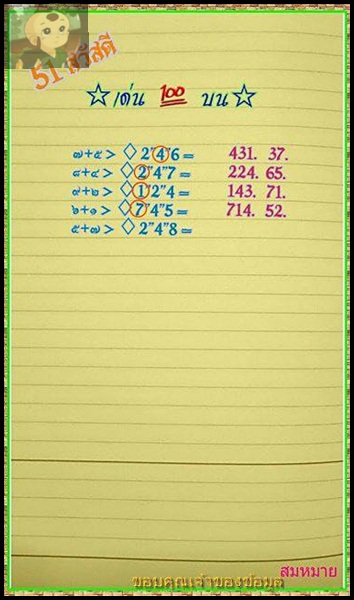 51 สวัสดี
☆เด่น 100 บน☆
๗+๕ > ◇ 2"4"6 = 431. 37.
๘+๔ > ◇ 2"4"7 = 224. 65.
๙+๒ > ◇ 1"2"4 = 143. 71.
๖+๑ > ◇ 7"4"5 = 714. 52.
๕+๗ > ◇ 2"4"8 =
สมหมาย
ขอบคุณเจ้าของข้อมูล